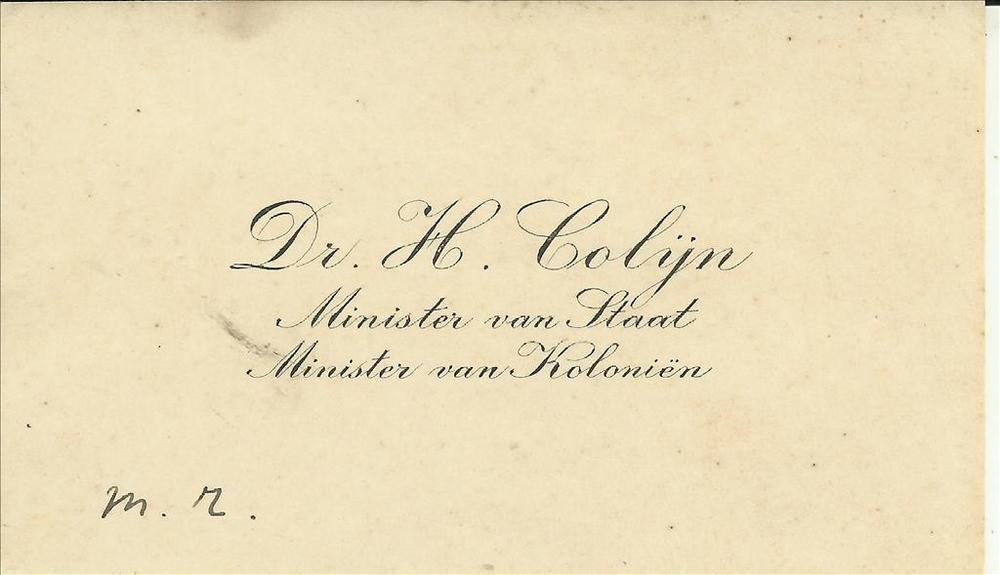 Dr. H. Colijn
Minister van Staat
Minister van Koloniën
m. r.